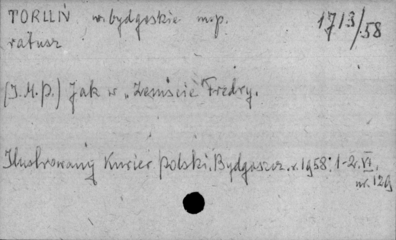 TORUŃ w. bydgoskie m.p. 1713/58
ratusz
(J.M.P.) Jak w „Zemście" Fredry.
Ilustrowany Kurier Polski. Bydgoszcz. r. 1958: 1-2.VI.
nr. 129